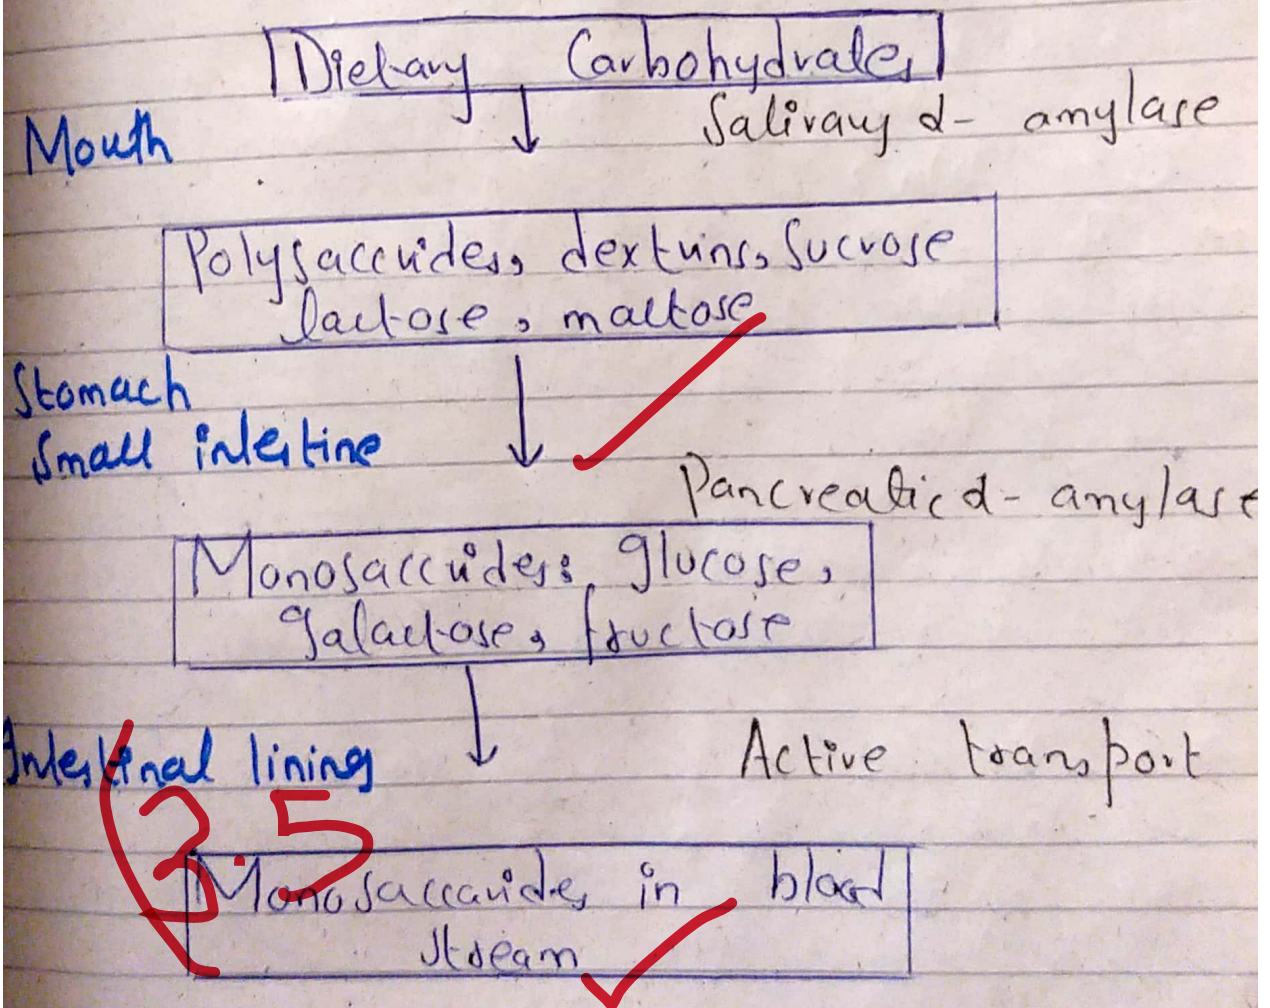 Dietary Carbohydrates
Mouth
Salivary α- amylase
Polysaccrides, dextrins, Sucrose
lactose, maltose
Stomach
Small intestine
Pancreatic α- amylase
Monosaccrides: glucose,
galactose, fructose
Intestinal lining
Active transport
3.5
Monosaccarides in blood
stream